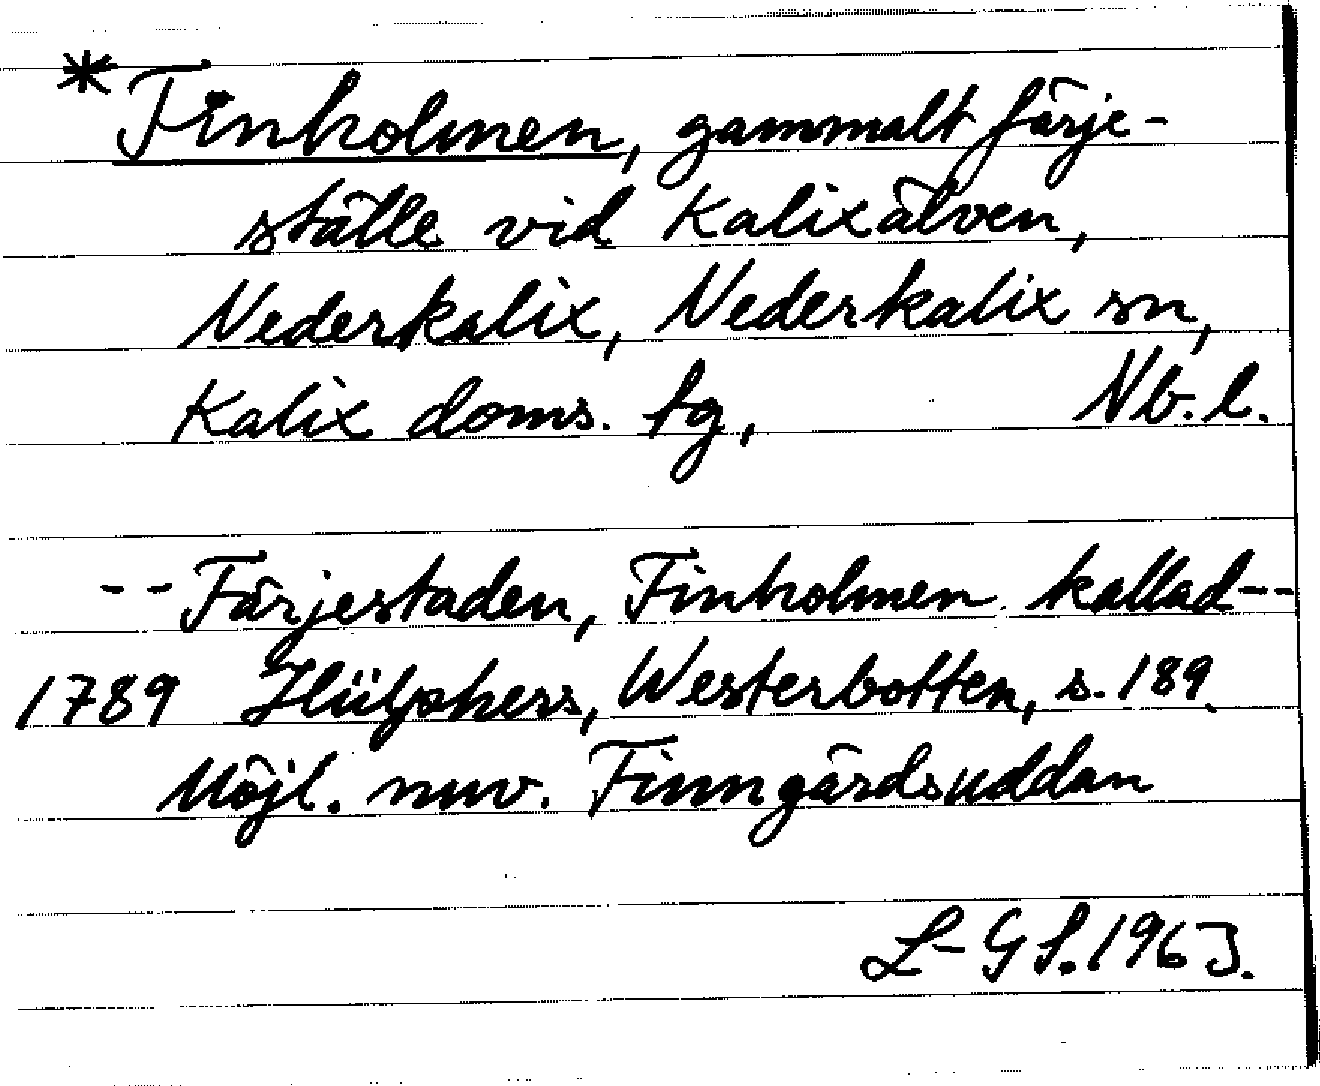 *Finholmen, gammalt färje-
ställe vid Kalixälven,
Nederkalix, Nederkalix sn,
Kalix doms. tg, Nb. l.
-- Färjestaden, Finholmen kallad --
1789 Hülphers, Westerbotten, s. 189.
Möjl. nuv. Finngärdsuddan
L-G S. 1963.